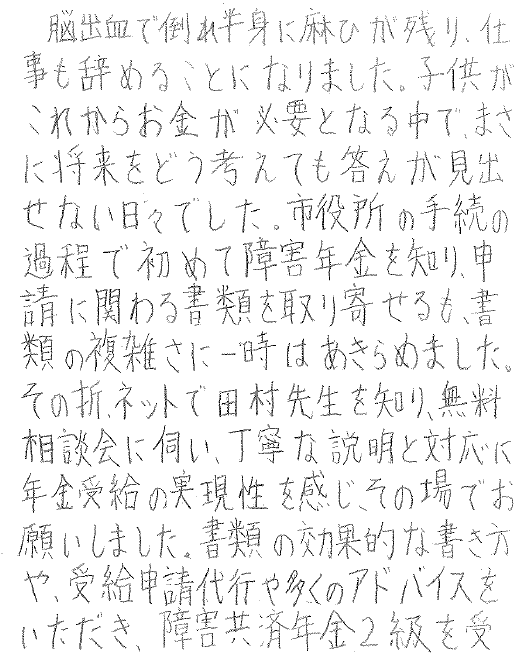 脳出血で倒れ半身に麻ひが残り、仕
事も辞めることになりました。子供が
これからお金が必要となる中で、まさ
に将来をどう考えても答えが見出
せない日々でした。市役所の手続の
過程で初めて障害年金を知り、申
請に関わる書類を取り寄せるも、書
類の複雑さに一時はあきらめました。
その折、ネットで田村先生を知り、無料
相談会に伺い、丁寧な説明と対応に
年金受給の実現性を感じ、その場でお
願いしました。書類の効果的な書き方
や、受給申請代行や多くのアドバイスを
いただき、障害共済年金2級を受